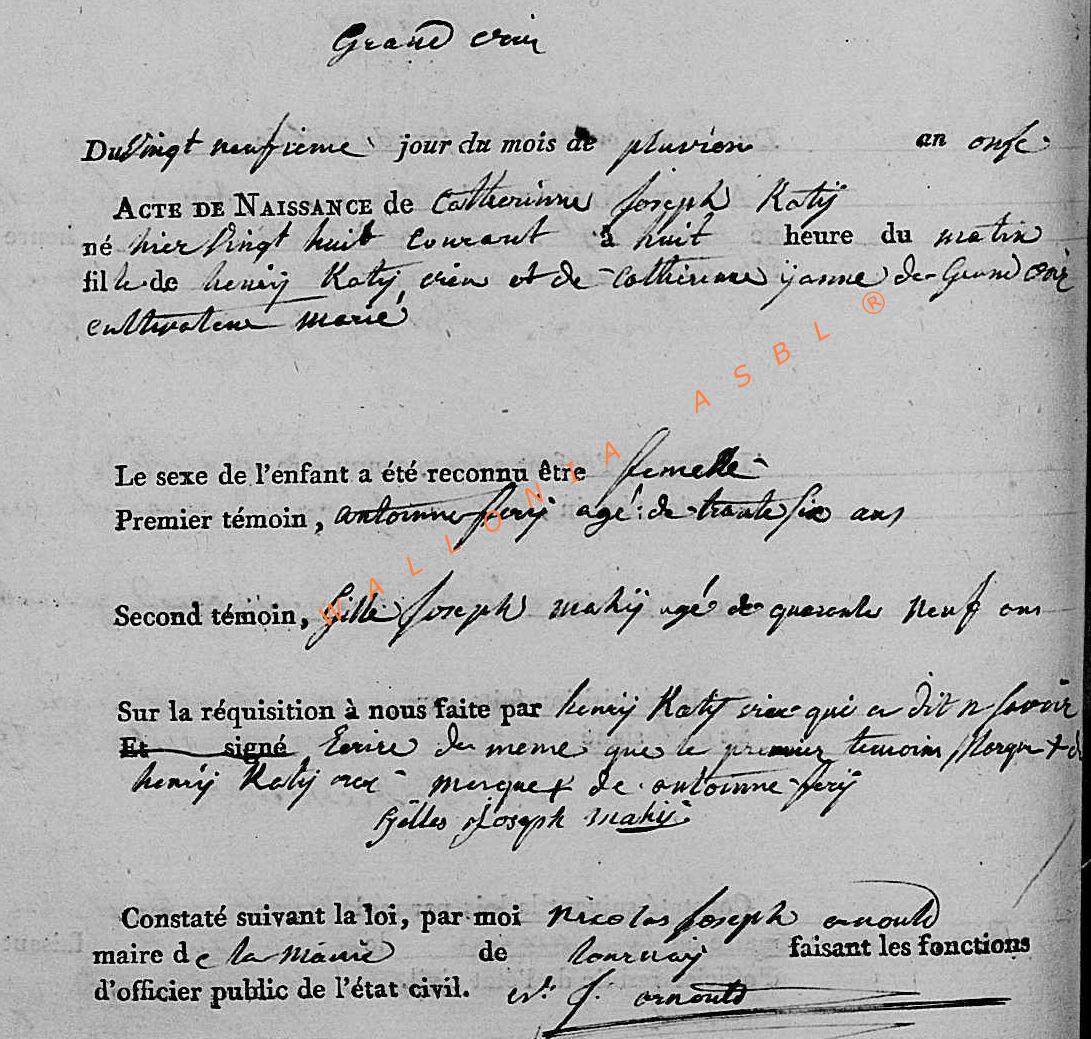 Grand voir
Du vingt neufieme jour du mois de pluvios an onse
ACTE DE NAISSANCE de Catherinne joseph Katÿ
né hier vingt huit courant à huit heure du matin
fille de henrÿ Katÿ et de catherinne de Grand voir
cultivateur marié
Le sexe de l'enfant a été reconnu être femelle
Premier témoin, antoinne ferÿ agé de trante six ans
Second témoin, Gille joseph mahÿ agé de quarente neuf ans
Sur la réquisition à nous faite par henrÿ Katÿ qui a dit n savoir
Et signé Ecrire du meme que le premier temoins marque + de
henrÿ Katÿ marque + de antoinne ferÿ
Gilles joseph mahÿ
Constaté suivant la loi, par moi nicolas joseph arnould
maire de la mairie de tournaÿ faisant les fonctions
d'officier public de l'état civil. j. arnould
WALLONIA ASBL ®